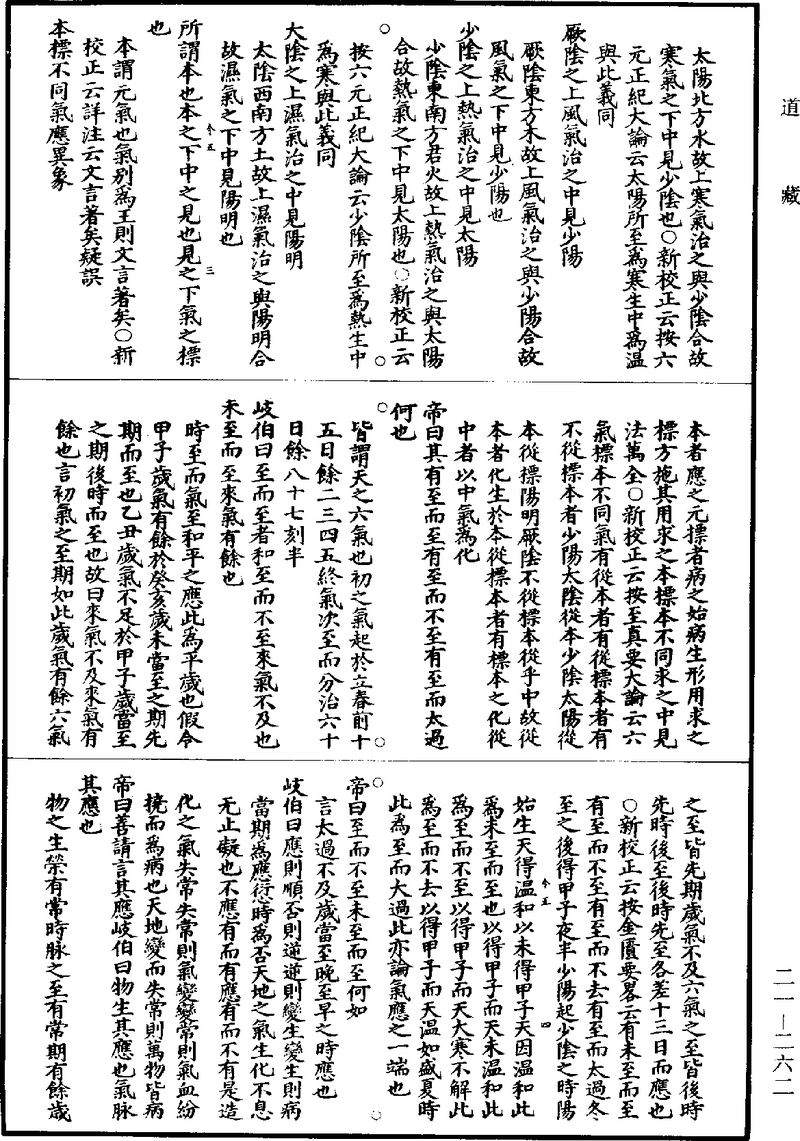 道藏
太陽北方水故上寒氣治之與少陰合故
寒氣之下中見少陰也○新校正云按六
元正紀大論云太陽所至爲寒生中爲温
與此義同
厥陰之上風氣治之中見少陽
厥陰東方木故上風氣治之與少陽合故
風氣之下中見少陽也
少陰之上熱氣治之中見太陽
少陰東南方君火故上熱氣治之與太陽
合故熱氣之下中見太陽也○新校正云
按六元正紀大論云少陰所至爲熱生中
爲寒與此義同
太陰之上濕氣治之中見陽明
太陰西南方土故上濕氣治之與陽明合
故濕氣之下中見陽明也
所謂本也本之下中之見也見之下氣之標
也
本謂元氣也氣別爲王則文言著矣○新
校正云詳注云文言著矣疑誤
本標不同氣應異象
本者應之元標者病之始病生形用求之
標方施其用求之本標本不同求之中見
法萬全○新校正云按至真要大論云六
氣標本不同氣有從本者有從標本者有
不從標本者少陽太陰從本少陰太陽從
本從標陽明厥陰不從標本從乎中故從
本者化生於本從標本者有標本之化從
中者以中氣爲化
帝曰其有至而至有至而不至有至而太過
何也
皆謂天之六氣也初之氣起於立春前十
五日餘二三四五終氣次至而分治六十
日餘八十七刻半
岐伯曰至而至者和至而不至來氣不及也
未至而至來氣有餘也
時至而氣至和平之應此爲平歲也假令
甲子歲氣有餘於癸亥歲未當至之期先
期而至也乙丑歲氣不足於甲子歲當至
之期後時而至也故曰來氣不及來氣有
餘也言初氣之至期如此歲氣有餘六氣
之至皆先期歲氣不及六氣之至皆後時
先時後至後時先至各差十三日而應也
○新校正云按金匱要畧云有未至而至
有至而不至有至而不去有至而太過冬
至之後得甲子夜半少陽起少陰之時陽
始生天得温和以未得甲子天因温和此
爲未至而至也以得甲子而天未温和此
爲至而不至以得甲子而天大寒不解此
爲至而不去以得甲子而天温如盛夏時
此爲至而太過此亦論氣應之一端也
帝曰至而不至未至而至何如
言太過不及歲當至晚至早之時應也
岐伯曰應則順否則逆逆則變生變生則病
當期爲應愆時爲否天地之氣生化不息
无止礙也不應有而有應有而不有是造
化之氣失常失常則氣變變常則氣血紛
撓而爲病也天地變而失常則萬物皆病
帝曰善請言其應岐伯曰物生其應也氣脉
其應也
物之生榮有常時脉之至有常期有餘歲
叁五
三
叁五
四
二一—二六二